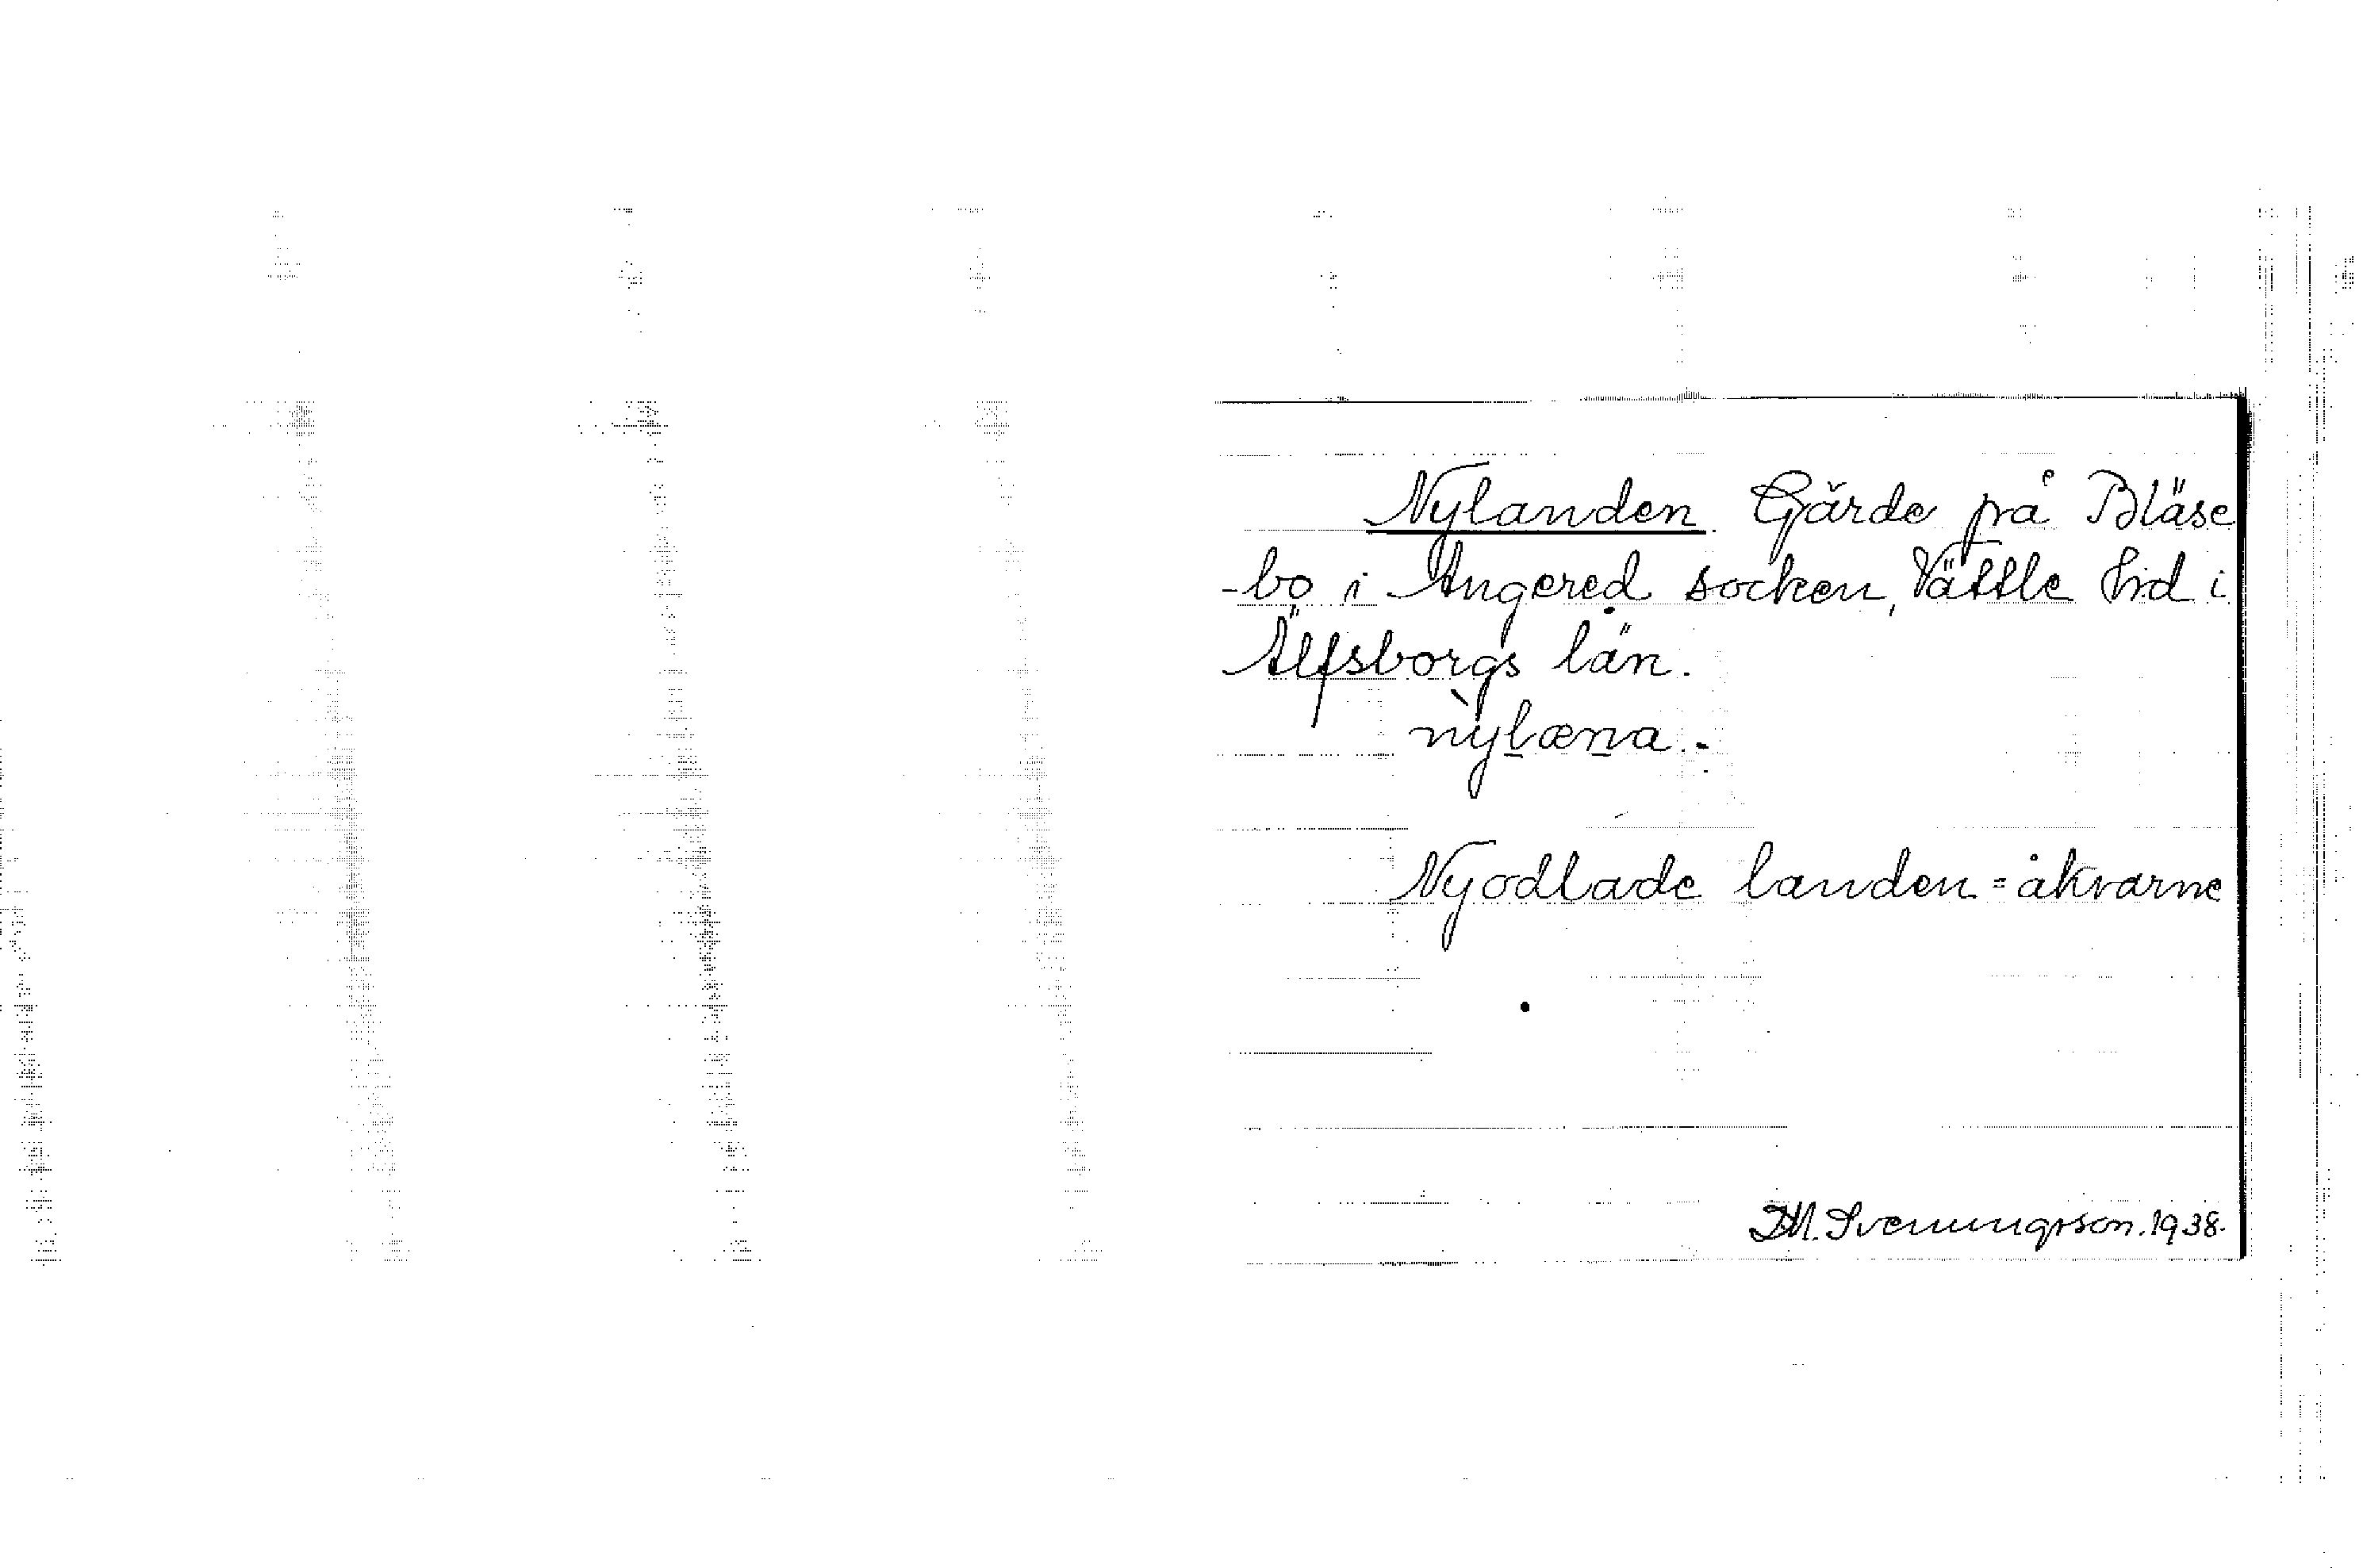 Nylanden. Gärde på Bläse
-bo i Angered socken, Vättle hd i
Älfsborgs län.
nỳlæna.-
Nyodlade landen = åkrarne
D.M. Svenungsson. 1938.